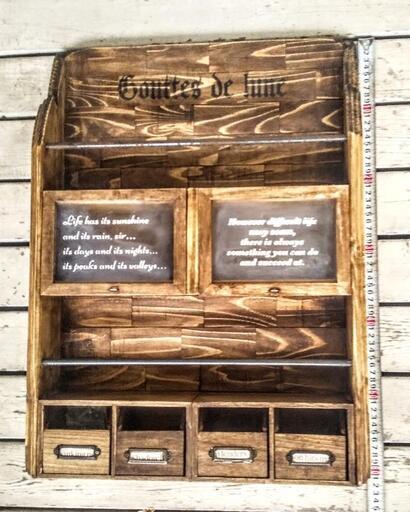 Gouttes de lune
Life has its sunshine
and its rain, sir...
its days and its nights...
its peaks and its valleys...
However difficult life
may seem,
there is always
something you can do
and succeed at.